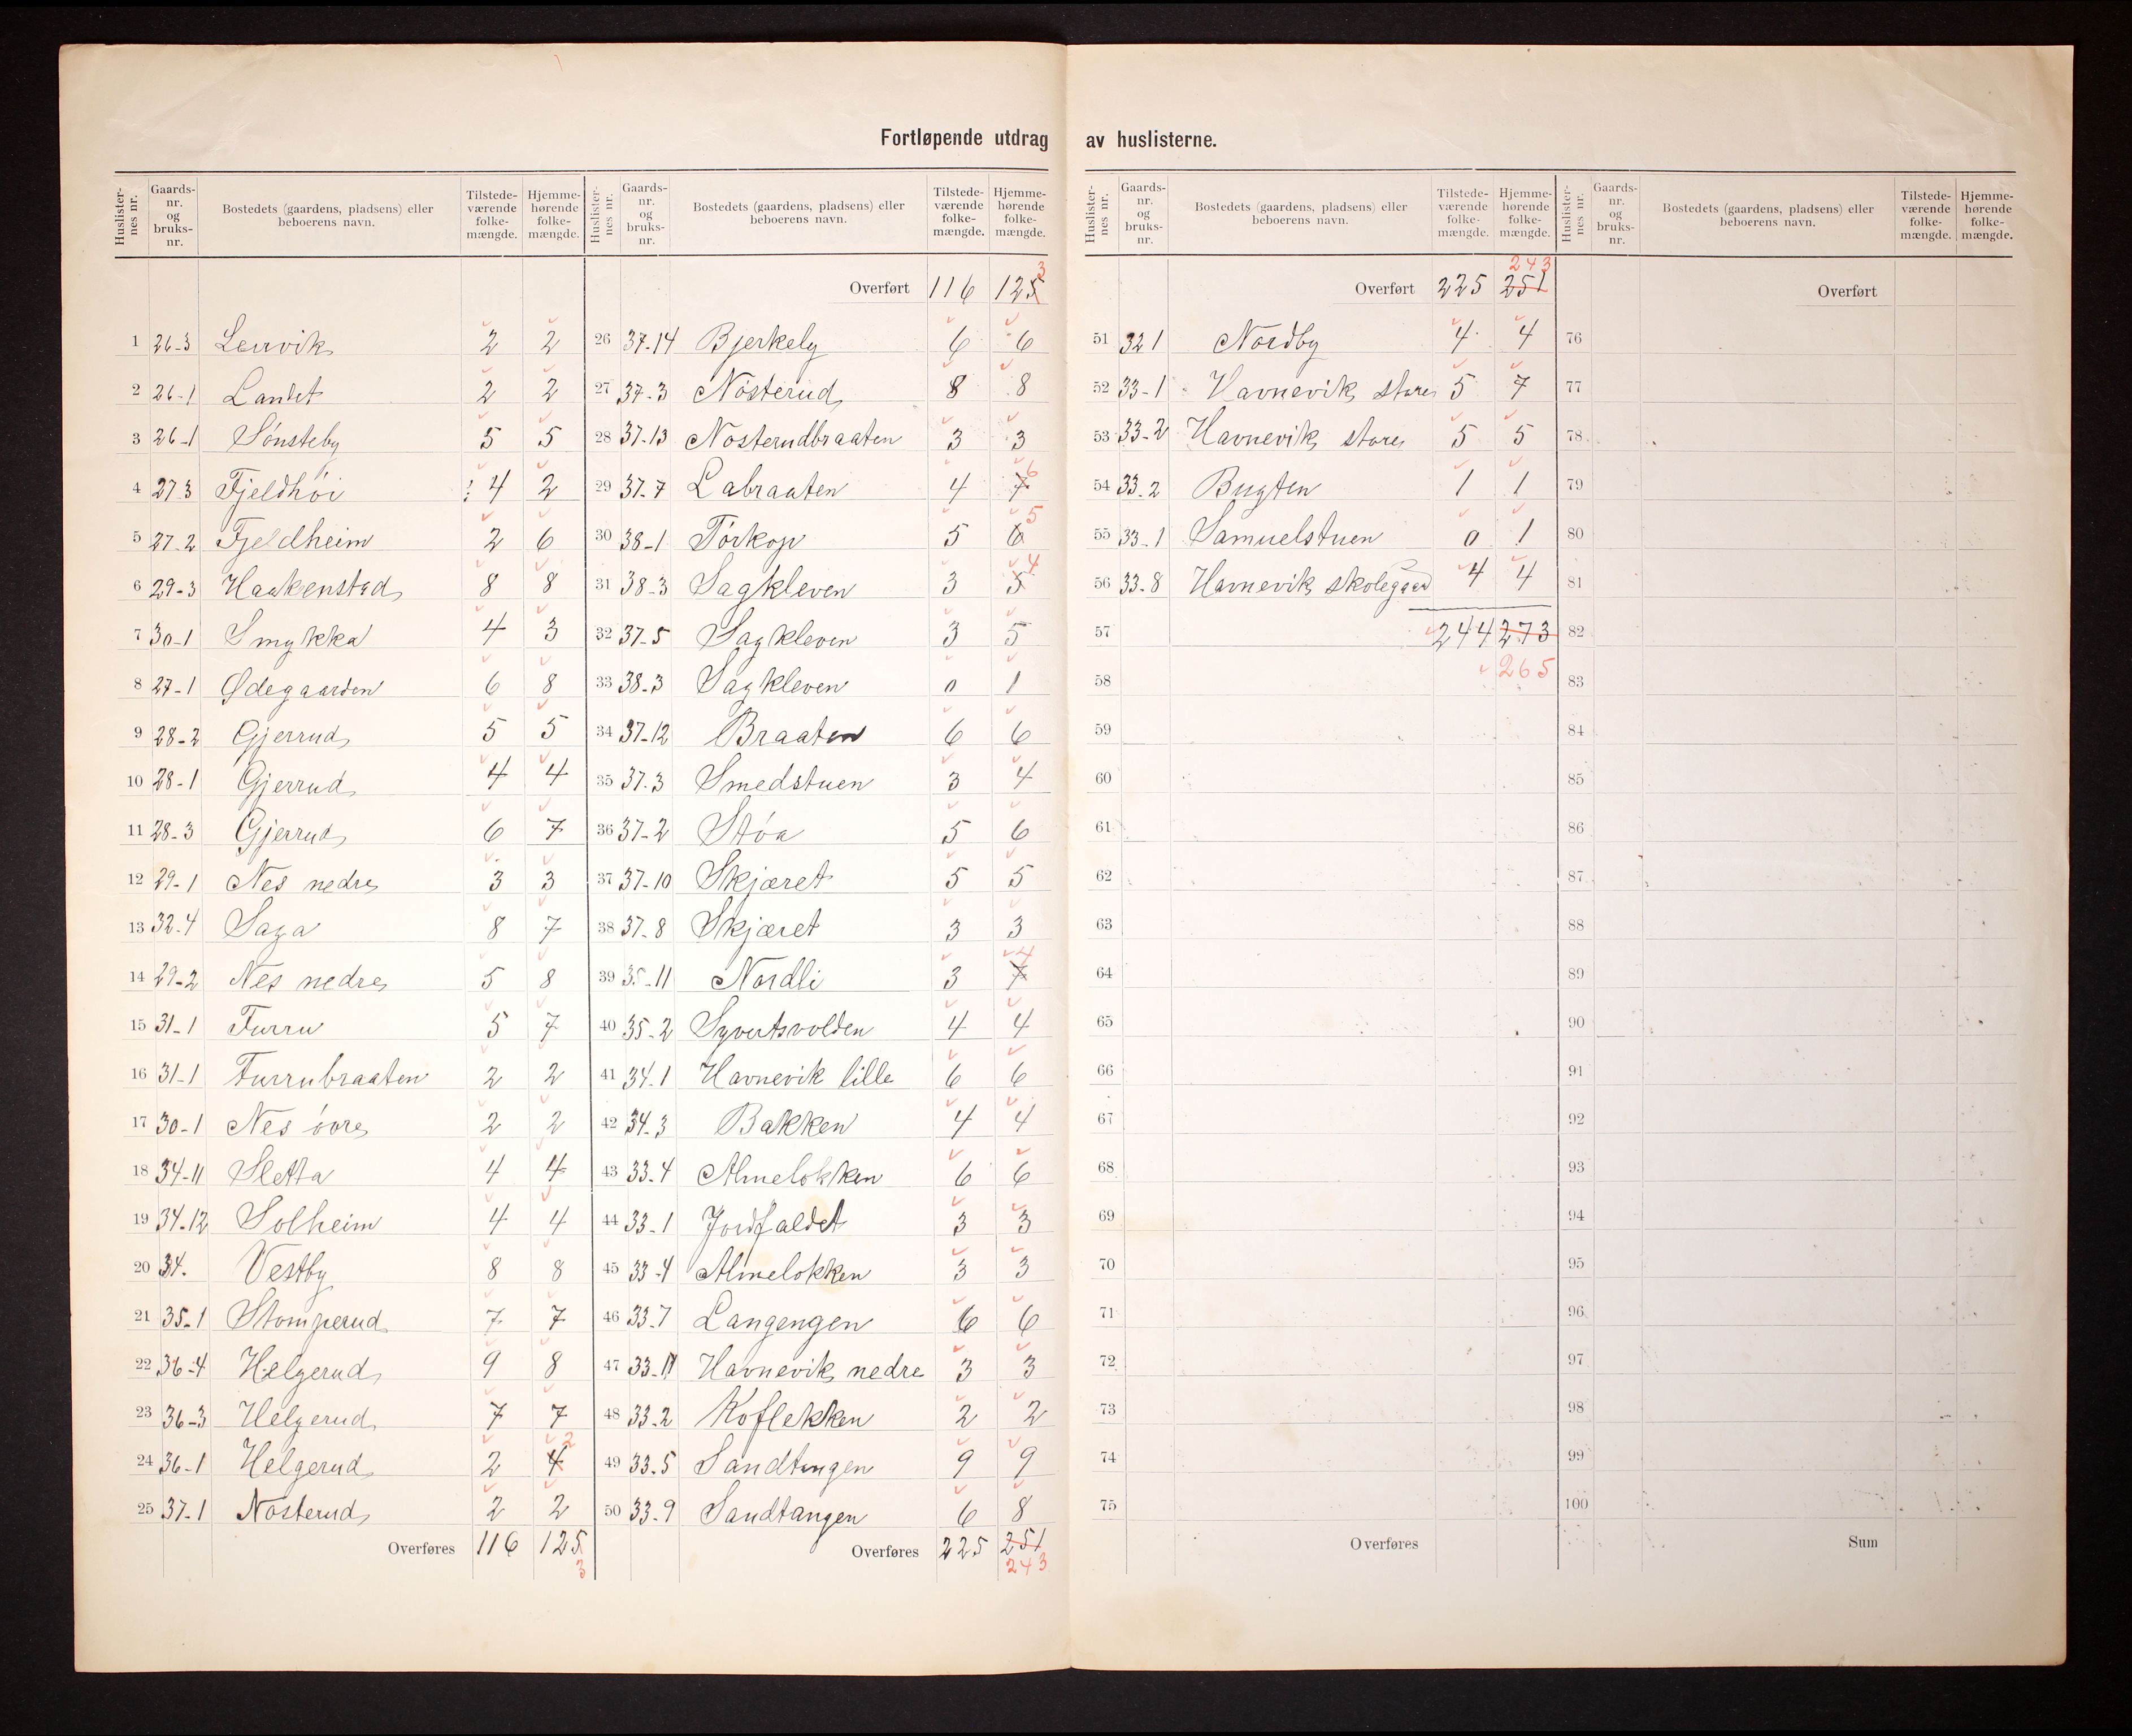 Fortløpende utdrag av huslisterne.
Huslister-nes nr. | Gaards-nr. og bruks-nr. | Bostedets (gaardens, pladsens) eller beboerens navn. | Tilstede-værende folke-mængde. | Hjemme-hørende folke-mængde.
1 26-3 Lervik 2 2
2 26-1 Landet 2 2
3 26-1 Sönsteby 5 5
4 27 3 Fjeldhöi 4 2
5 27-2 Fjeldheim 2 6
6 29-3 Haakenstad 8 8
7 30-1 Smykka 4 3
8 27-1 Ødegaarden 6 8
9 28-2 Gjerrud 5 5
10 28-1 Gjerrud 4 4
11 28-3 Gjerrud 6 7
12 29-1 Nes nedre 3 3
13 32.4 Saga 8 7
14 29-2 Nes nedre 5 8
15 31-1 Furru 5 7
16 31-1 Furrubraaten 2 2
17 30-1 Nes övre 2 2
18 34-11 Sletta 4 4
19 34-12 Solheim 4 4
20 34. Vestby 8 8
21 35-1 Stomperud 7 7
22 36-4 Helgerud 9 8
23 36-3 Helgerud 7 7
24 36-1 Helgerud 2 4 2
25 37-1 Nosterud 2 2
Overføres 116 125 3
Huslister-nes nr. | Gaards-nr. og bruks-nr. | Bostedets (gaardens, pladsens) eller beboerens navn. | Tilstede-værende folke-mængde. | Hjemme-hørende folke-mængde.
Overført 116 125 3
26 37-14 Bjerkely 6 6
27 37-3 Nösterud 8 8
28 37-13 Nosterudbraaten 3 3
29 37-7 Labraaten 4 7 6
30 38-1 Törkop 5 6 5
31 38-3 Sagkleven 3 5 4
32 37-5 Sagkleven 3 5
33 38.3 Sagkleven 0 1
34 37-12 Braaten 6 6
35 37.3 Smedstuen 3 4
36 37-2 Stöa 5 6
37 37-10 Skjæret 5 5
38 37-8 Skjæret 3 3
39 35-11 Nordli 3 7 4
40 35-2 Syvertsvolden 4 4
41 34.1 Havnevik lille 6 6
42 34.3 Bakken 4 4
43 33.4 Almelokken 6 6
44 33-1 Jordfaldet 3 3
45 33-4 Almelokken 3 3
46 33.7 Langengen 6 6
47 33-11 Havnevik nedre 3 3
48 33.2 Koflekken 2 2
49 33.5 Sandtangen 9 9
50 33.9 Sandtangen 6 8
Overføres 225 251
243
Huslister-nes nr. | Gaards-nr. og bruks-nr. | Bostedets (gaardens, pladsens) eller beboerens navn. | Tilstede-værende folke-mængde. | Hjemme-hørende folke-mængde.
243
Overført 225 251
51 32 1 Nordby 4 4
52 33-1 Havnevik store 5 7
53 33-2 Havnevik store 5 5
54 33.2 Bugten 1 1
55 33-1 Samuelstuen 0 1
56 33.8 Havnevik skolegaard 4 4
57 244 273
58 265
59
60
61
62
63
64
65
66
67
68
69
70
71
72
73
74
75
Overføres
Huslister-nes nr. | Gaards-nr. og bruks-nr. | Bostedets (gaardens, pladsens) eller beboerens navn. | Tilstede-værende folke-mængde. | Hjemme-hørende folke-mængde.
Overført
76
77
78
79
80
81
82
83
84
85
86
87
88
89
90
91
92
93
94
95
96
97
98
99
100
Sum